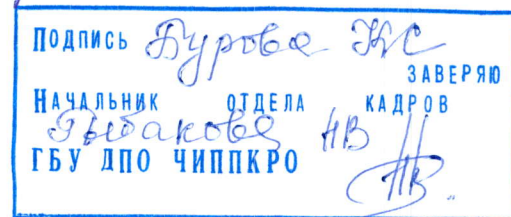 Подпись Бурова КС
ЗАВЕРЯЮ
Начальник отдела кадров
Рыбакова НВ
ГБУ ДПО ЧИППКРО